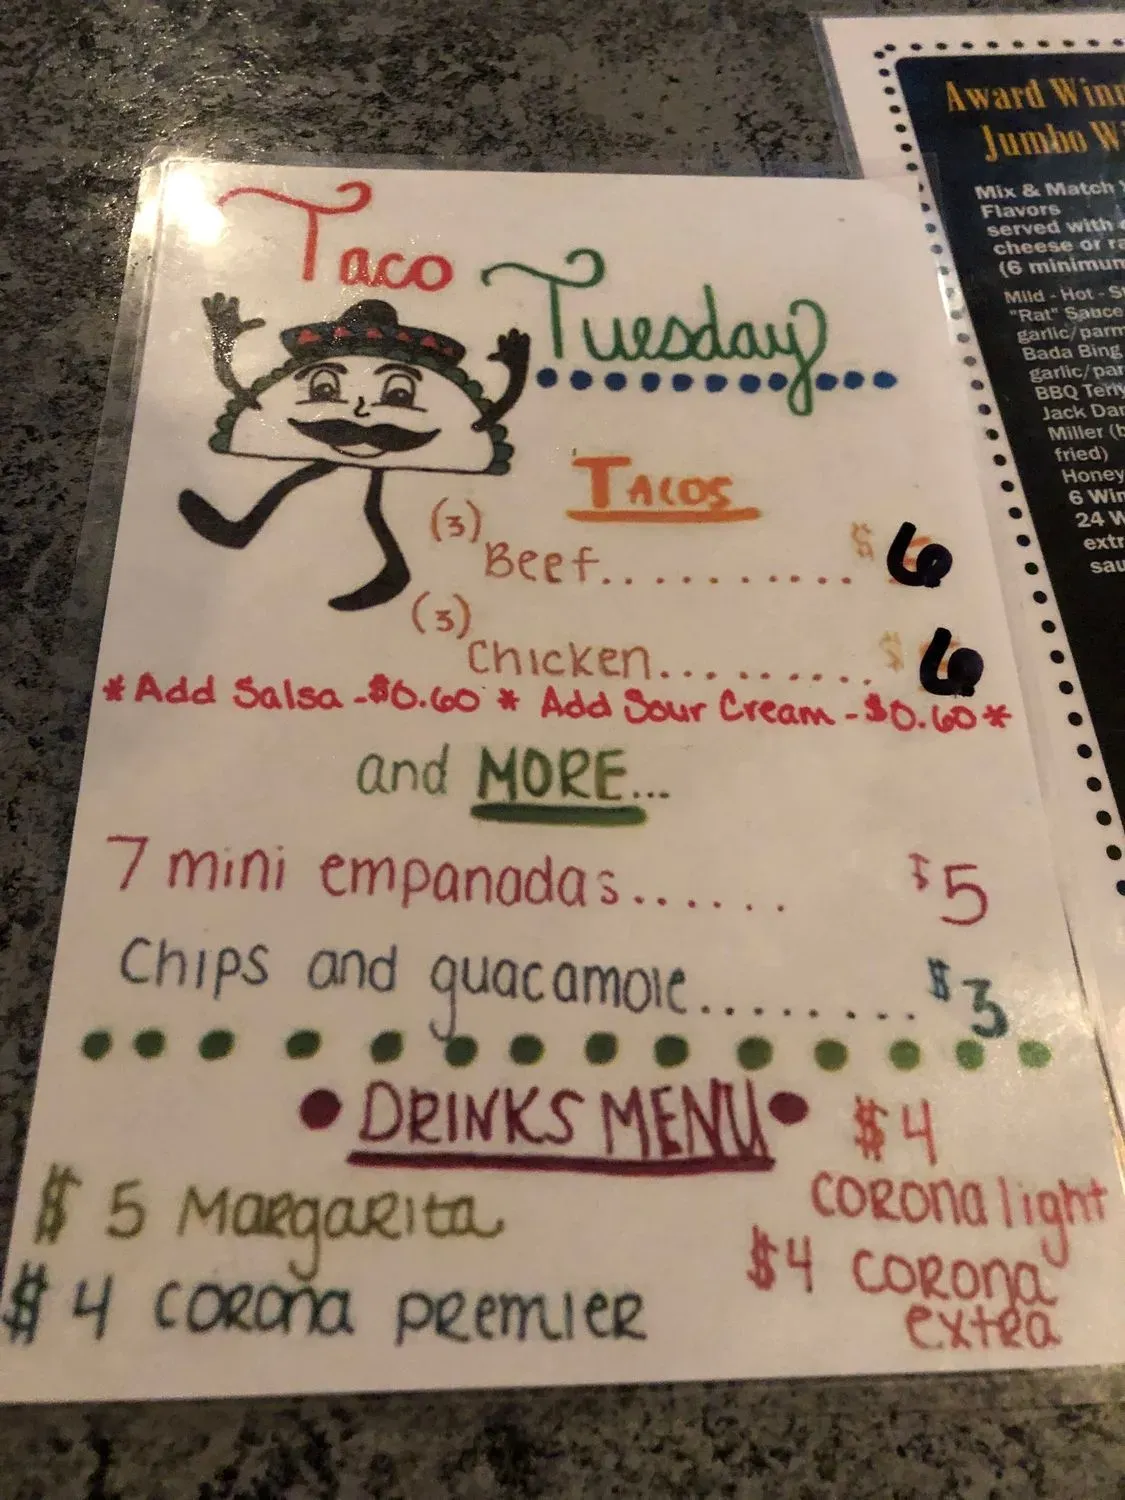 Taco
Tuesday
TACOS
(3) Beef........... $ 6
(3) Chicken.......... $ 6
*Add Salsa -$0.60 * Add Sour Cream -$0.60*
and MORE...
7 mini empanadas...... $5
Chips and guacamole......... $3
• DRINKS MENU •
$ 5 Margarita
$ 4 corona premier
$4
corona light
$4 corona
extra
Award
Jumbo
Mix & Match
Flavors
served with
cheese or
(6 minimum
Mild - Hot -
"Rat" Sauce
garlic/parm
Bada Bing
garlic/par
BBQ
Jack
Miller
fried)
Honey
6
24